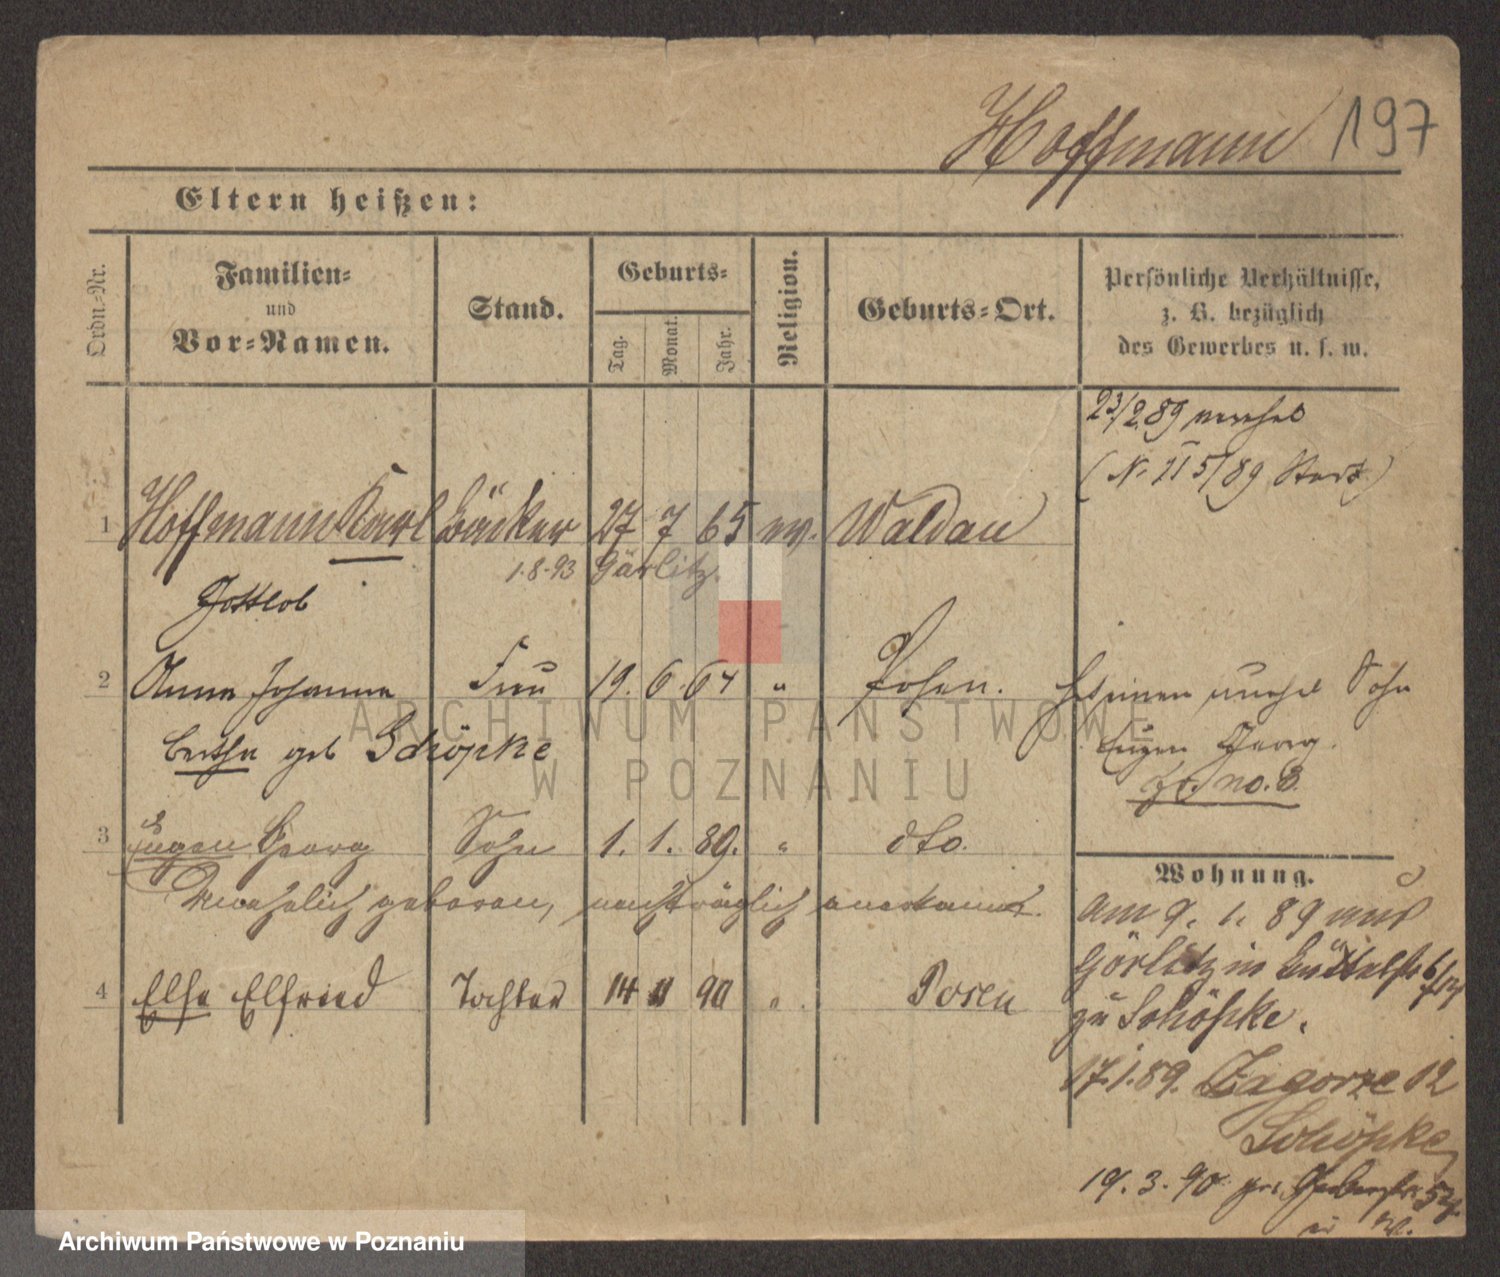 Hoffmann 197
Eltern heißen:
Ordn.-Nr.
Familien-
und
Vor-Namen.
Stand.
Geburts-
Tag.
Monat.
Jahr.
Religion.
Geburts-Ort.
Persönliche Verhältnisse,
z. B. bezüglich
des Gewerbes u. s. w.
23/2 89 verehel
(N. II 5/89 )
1 Hoffmann Karl Bäcker 27 7 65 ev. Waldau
1.8.93 Görlitz.
Gottlob
2 Anna Johanna Frau 19. 6. 64 " Posen.
unehel Sohn
Bertha geb Schöpke
Eugen Georg.
fr. no. 3.
3 Eugen Georg Sohn 1. 1. 89. " dto.
Unehelich geboren, nachträglich anerkannt.
Wohnung.
am 9. 1. 89 aus
4 Else Elfried Tochter 14 11 90 " Posen
Görlitz in
zu Schöpke.
17.1.89. Zagorze 12
Schöpke
19. 3. 90
ARCHIWUM PAŃSTWOWE
W POZNANIU
Archiwum Państwowe w Poznaniu